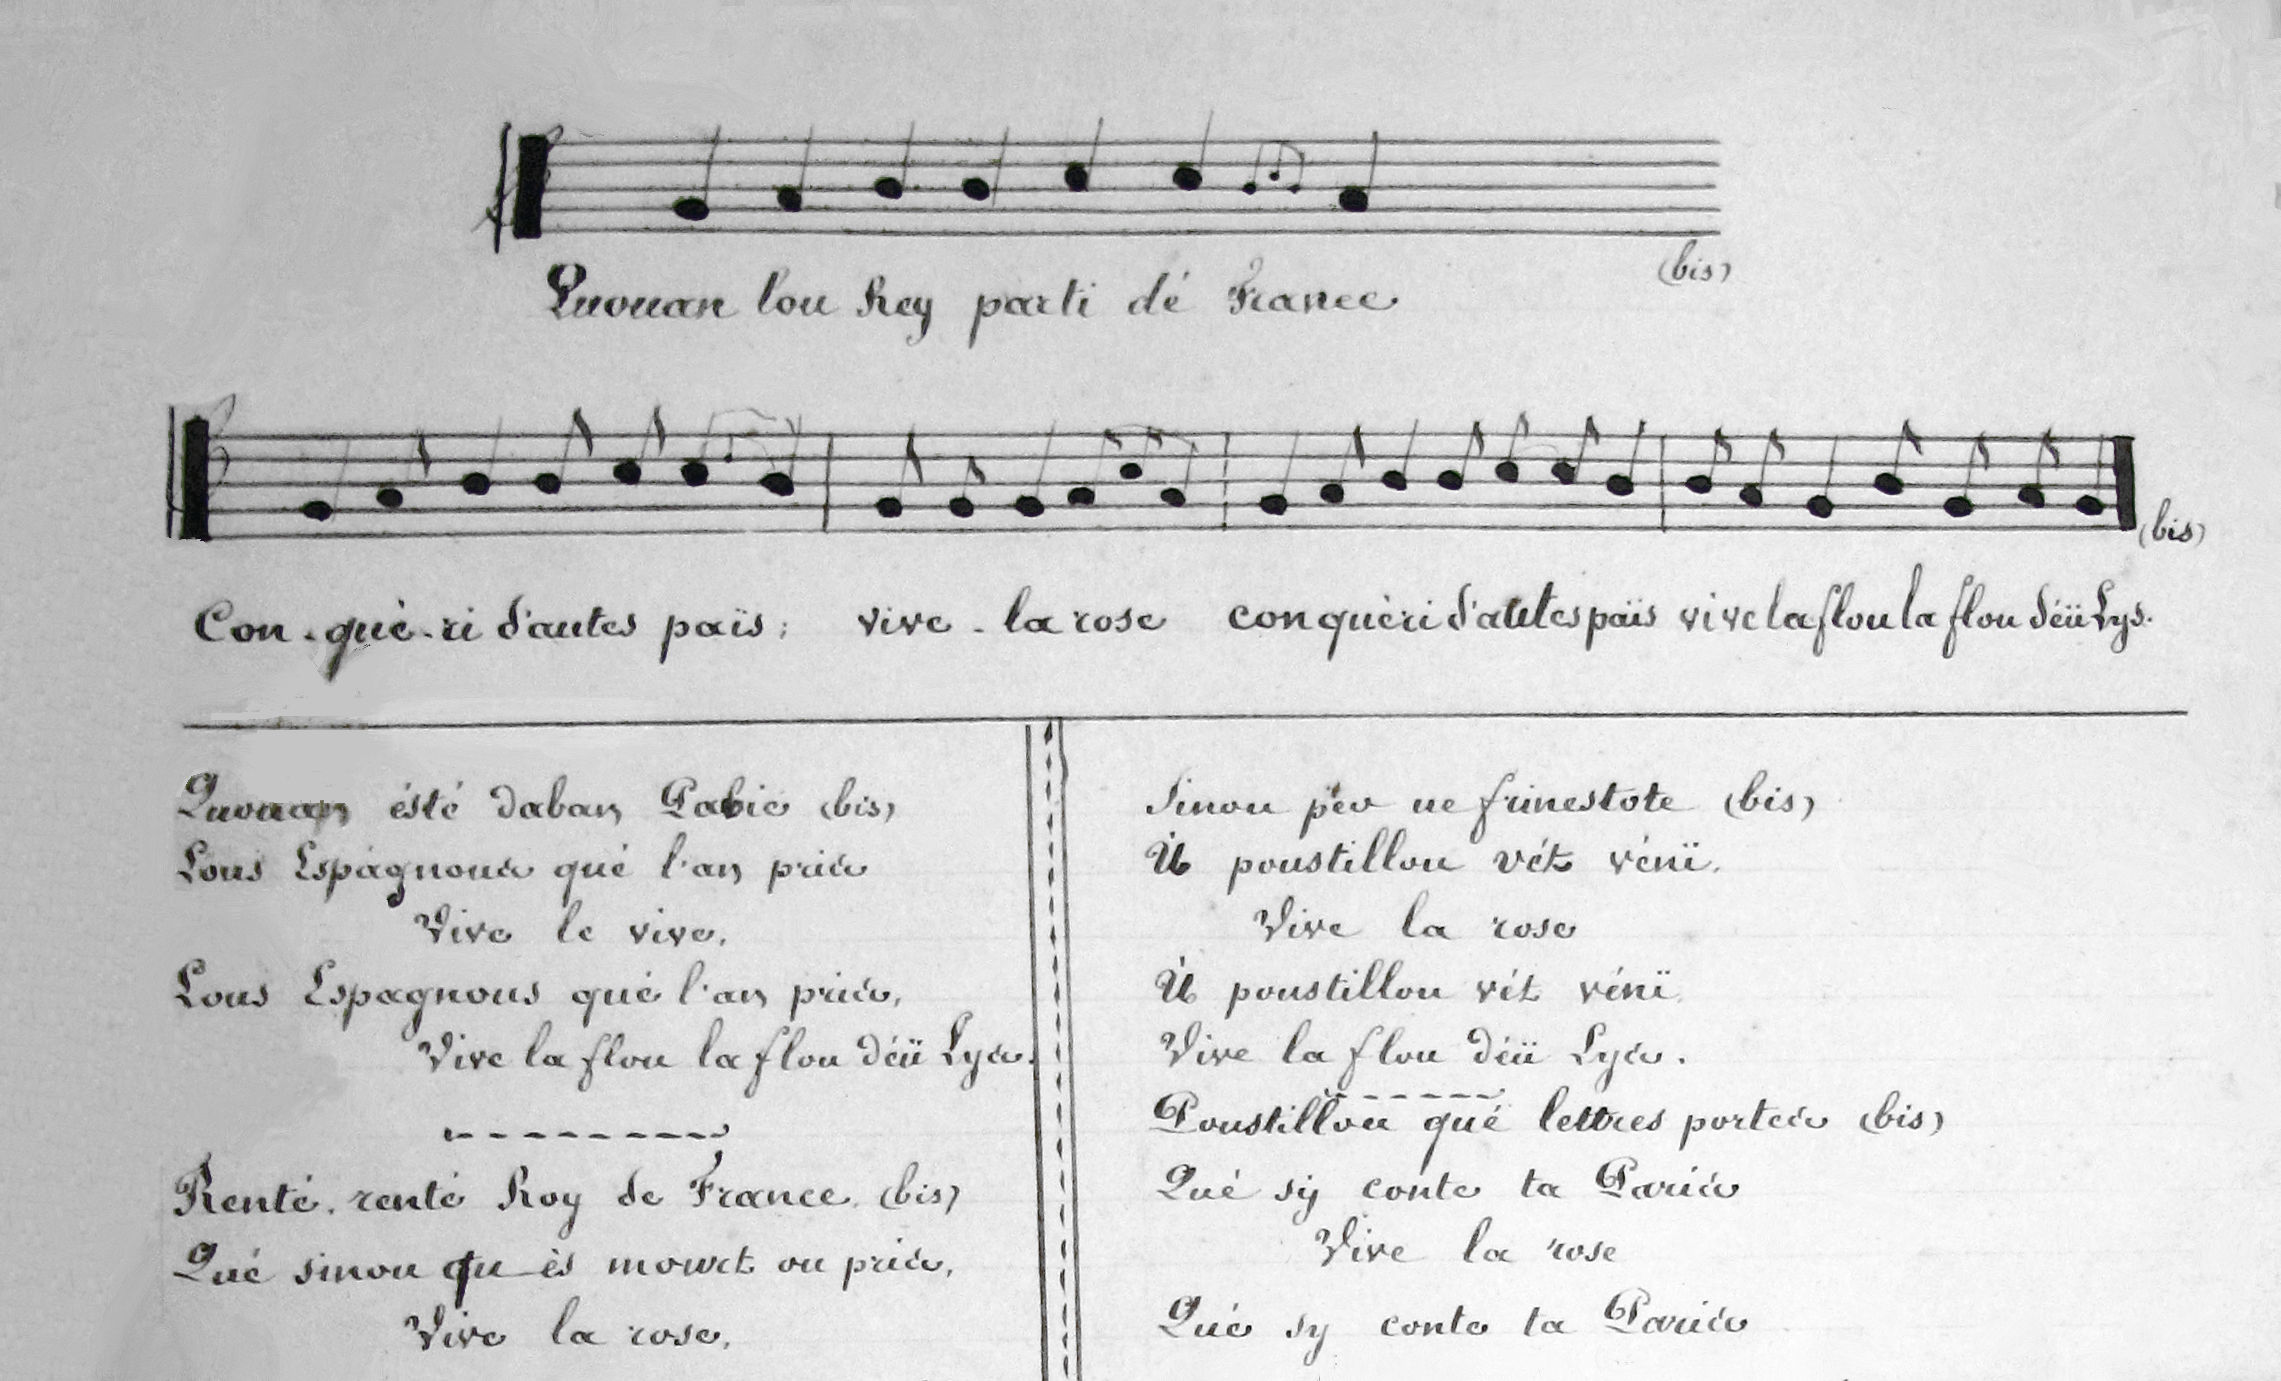 Quouan lou Rey parti dé France
(bis)
Con-què-ri d'autes païs; vive - la rose conquèri d'autes païs vive la flou la flou déü Lys.
(bis)
Quouan ésté daban Pabie (bis)
Lous Espagnous què l'an pris
Vive le vive,
Lous Espagnous què l'an pris,
Vive la flou la flou déü Lys.
Renté, renté Roy de France (bis)
Qué sinou qu ès mourt ou pris,
Vive la rose,
Sinou per ue frinestote (bis)
Û poustillou vét véni.
Vive la rose
Û poustillou vét véni.
Vive la flou déü Lys.
Poustillou qué lettres portes (bis)
Qué sy conte ta Paris
Vive la rose
Qué sy conte ta Paris